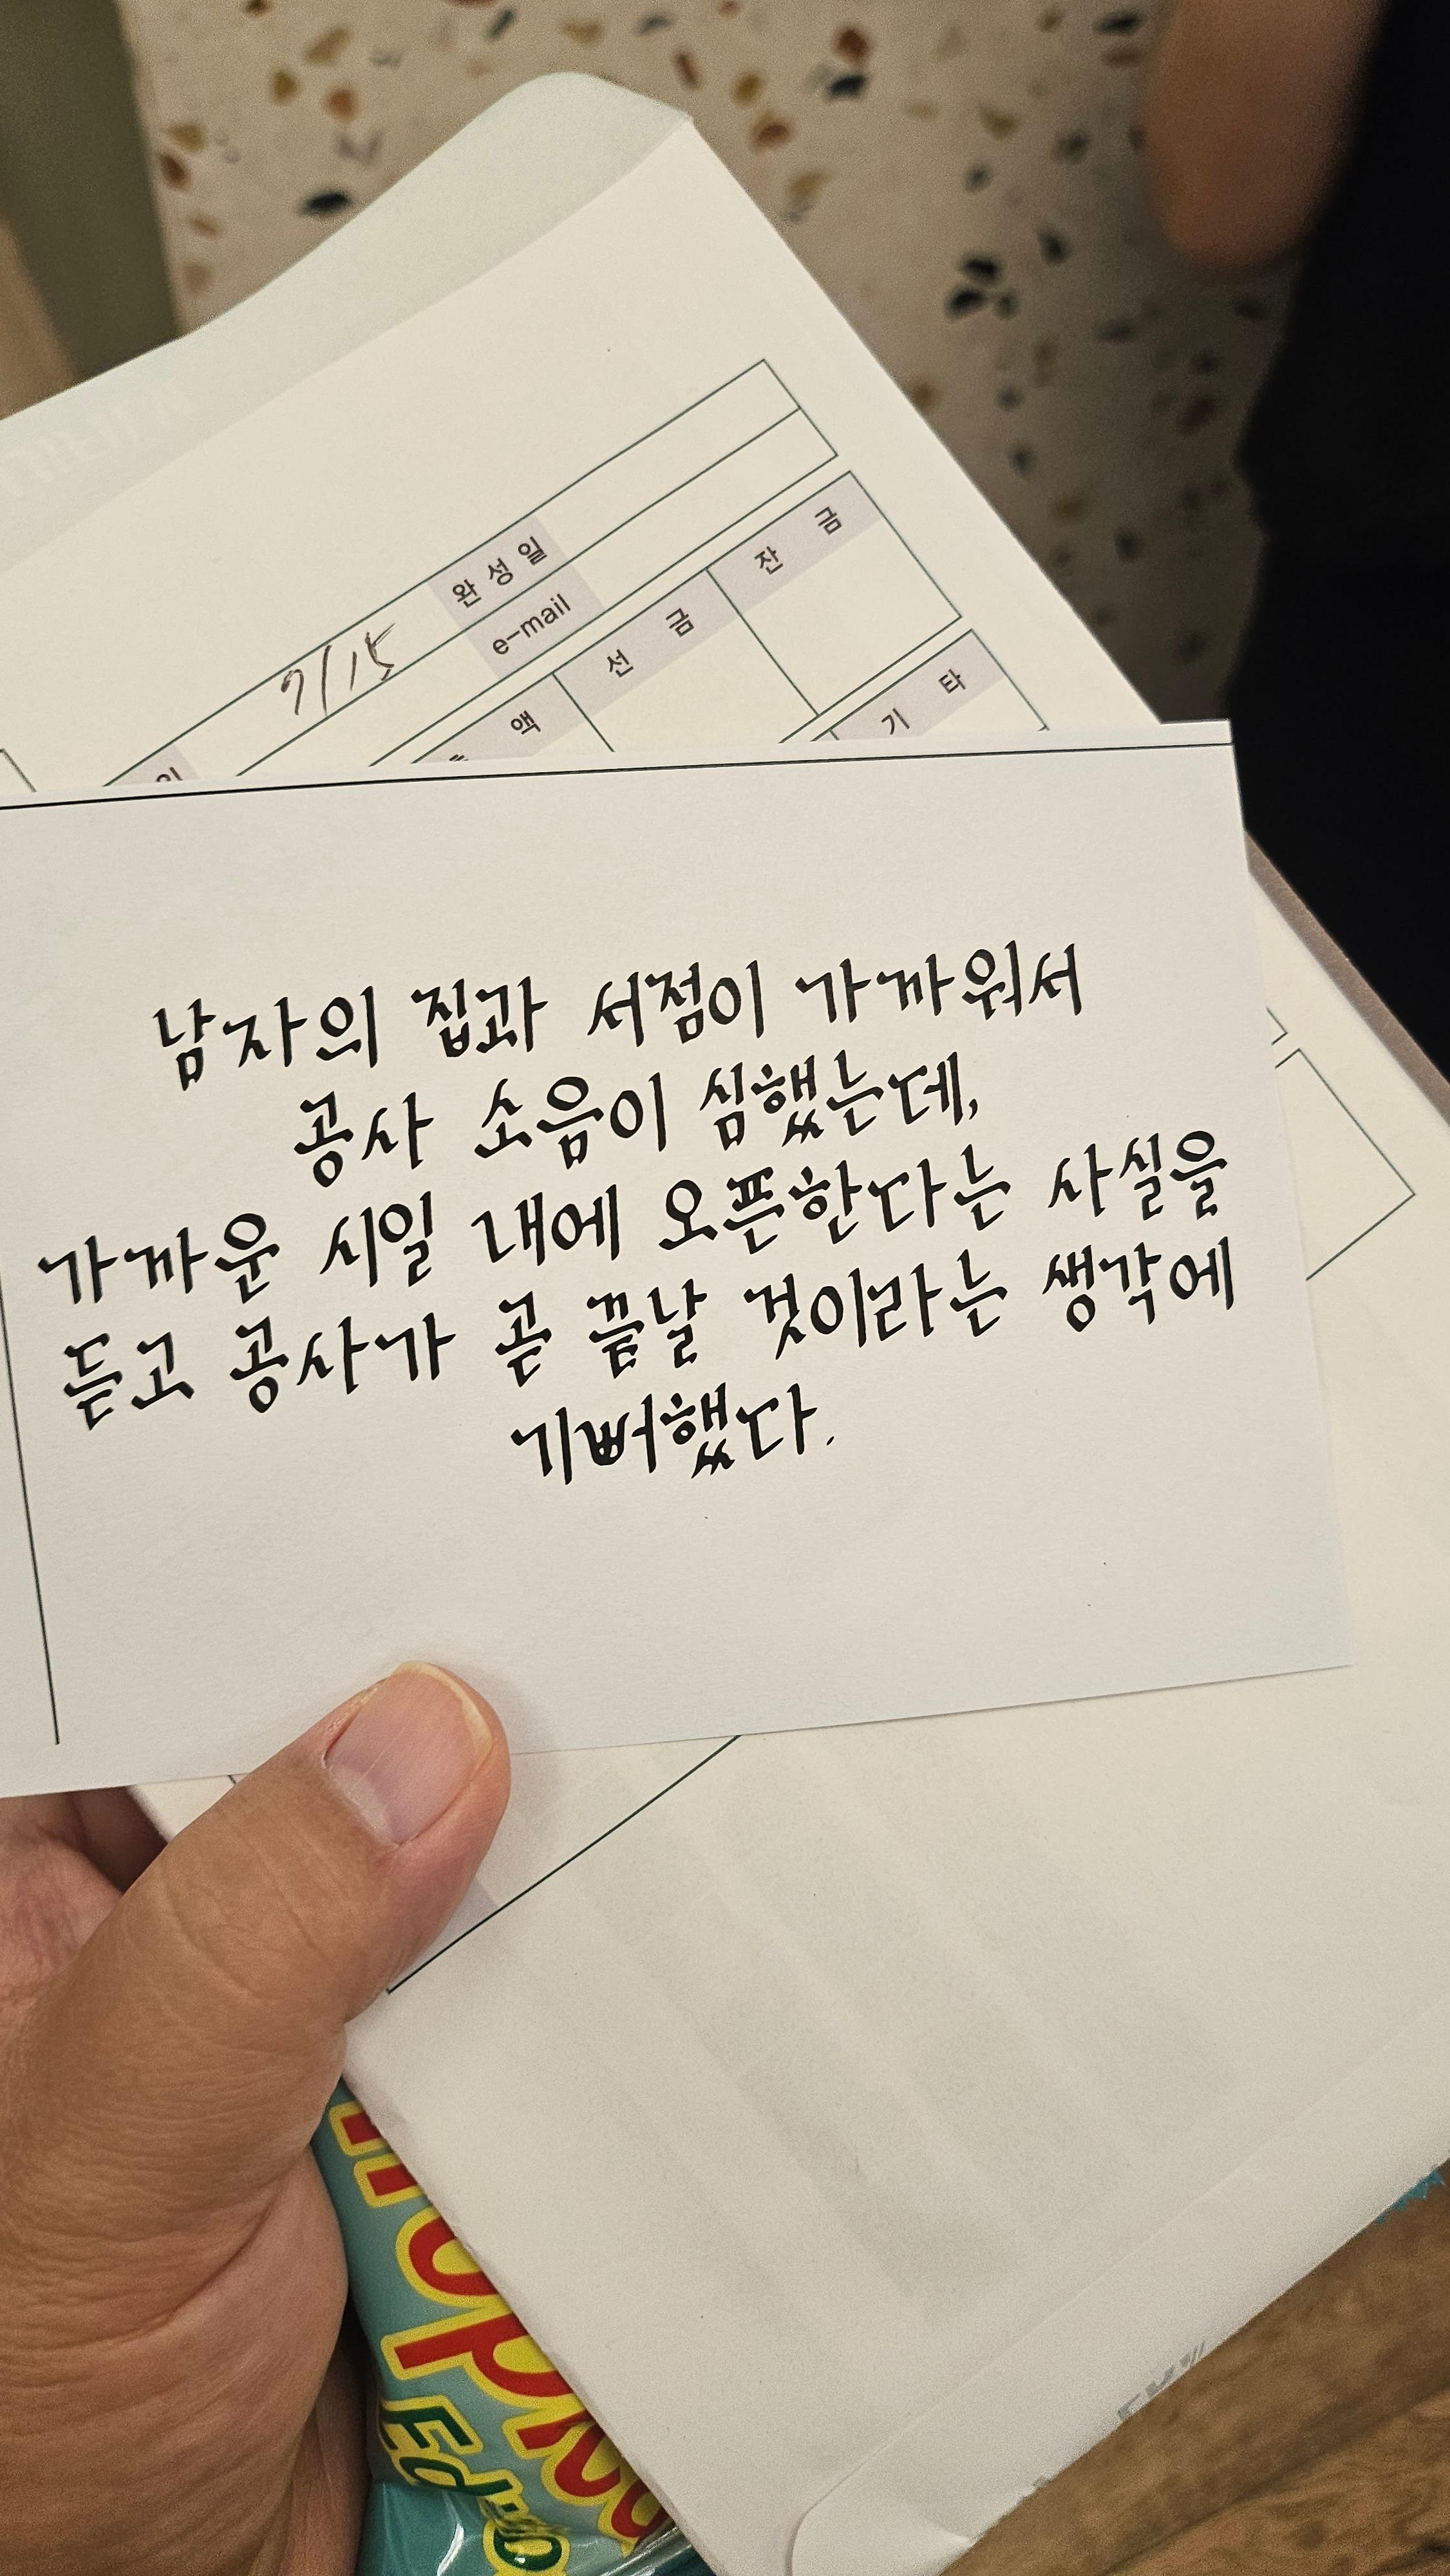 완성일
7/15
e-mail
잔 금
선 금
액
기 타
남자의 집과 서점이 가까워서
공사 소음이 심했는데,
가까운 시일 내에 오픈한다는 사실을
듣고 공사가 곧 끝날 것이라는 생각에
기뻐했다.